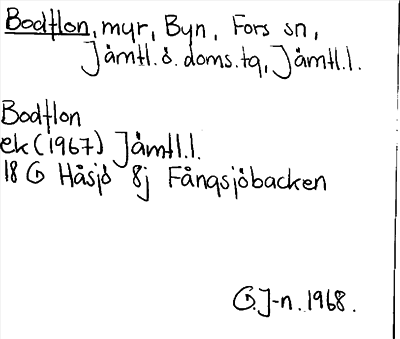 Bodflon, myr, Byn, Fors sn,
Jämtl. ö. doms. tg, Jämtl. l.
Bodflon
ek (1967) Jämtl. l.
18 G Håsjö 8j Fångsjöbacken
G. J-n. 1968.